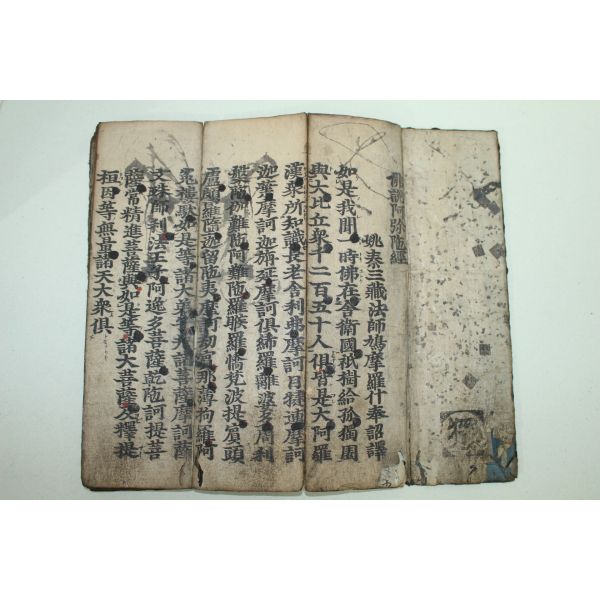 佛說阿弥陁經
姚秦三藏法師鳩摩羅什奉詔譯
如是我聞一時佛在舍衛國祇樹給孤獨園
與大比丘衆千二百五十人俱皆是大阿羅
漢衆所知識長老舍利弗摩訶目犍連摩訶
迦葉摩訶迦旃延摩訶俱絺羅離婆多周利
槃陁伽難陁阿難陁羅睺羅憍梵波提賓頭
盧頗羅墮迦留陁夷摩訶劫賓那薄拘羅阿
㝹樓駄如是等諸大弟子并諸菩薩摩訶薩
文殊師利法王子阿逸多菩薩乾陁訶提菩
薩常精進菩薩與如是等諸大菩薩及釋提
桓因等無量諸天大衆俱